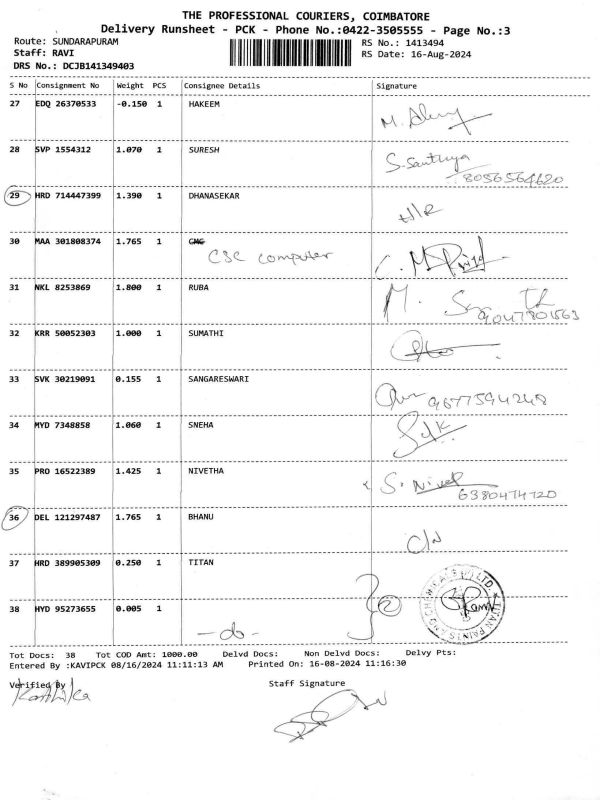 THE PROFESSIONAL COURIERS, COIMBATORE
Delivery Runsheet - PCK - Phone No.:0422-3505555 - Page No.:3
Route: SUNDARAPURAM RS No.: 1413494
Staff: RAVI RS Date: 16-Aug-2024
DRS No.: DCJB141349403
S No Consignment No Weight PCS Consignee Details Signature
27 EDQ 26370533 -0.150 1 HAKEEM
28 SVP 1554312 1.070 1 SURESH S. Santhiya
8056564620
29 HRD 714447399 1.390 1 DHANASEKAR
30 MAA 301808374 1.765 1 CMC
CSC computer
31 NKL 8253869 1.800 1 RUBA
9047801563
32 KRR 50052303 1.000 1 SUMATHI
33 SVK 30219091 0.155 1 SANGARESWARI
9677594248
34 MYD 7348858 1.060 1 SNEHA
35 PRO 16522389 1.425 1 NIVETHA S. Nivet
6380474720
36 DEL 121297487 1.765 1 BHANU
37 HRD 389905309 0.250 1 TITAN
2
38 HYD 95273655 0.005 1
-do-
TITAN PAINTS AND CHEMICALS (P) LTD
Tot Docs: 38 Tot COD Amt: 1000.00 Delvd Docs: Non Delvd Docs: Delvy Pts:
Entered By :KAVIPCK 08/16/2024 11:11:13 AM Printed On: 16-08-2024 11:16:30
Verified By Staff Signature
Karthika